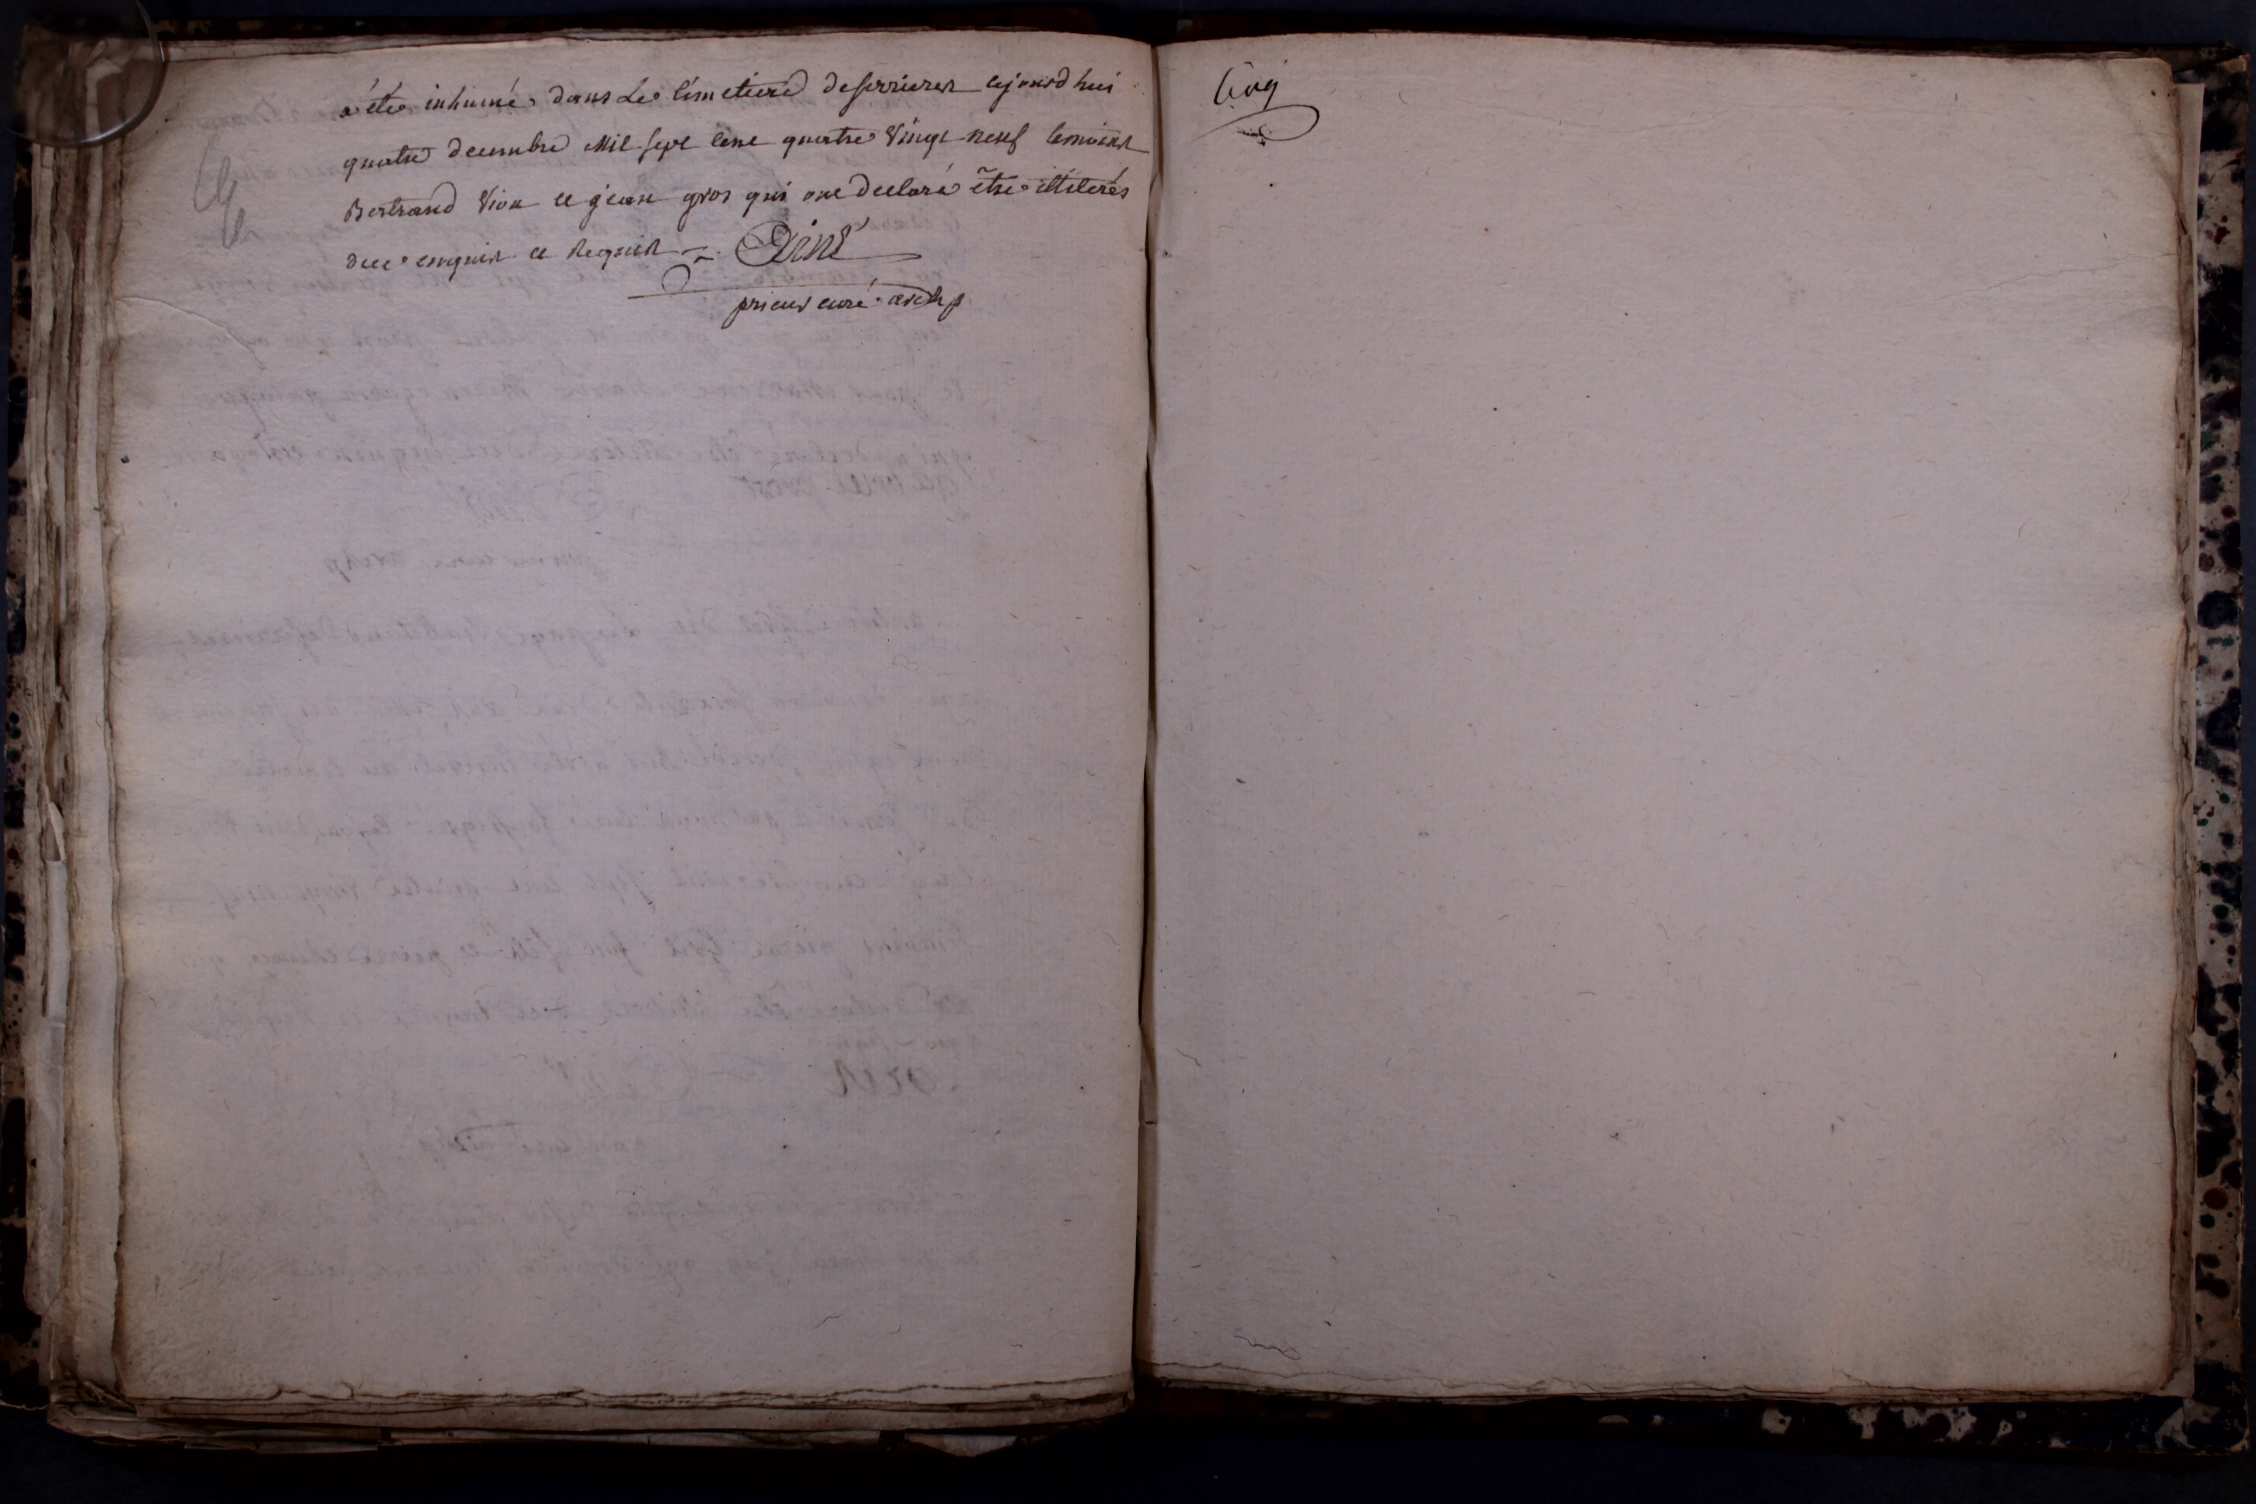 a été inhumé dans Le Cimetiere deserrieres cejourdhui
quatre decembre Mil sept Cent quatre Vingt neuf temoins
Bertrand Vion et jean gros qui ont declaré être illiterés
de ce enquis et Requis
prieur curé archp
Cinq